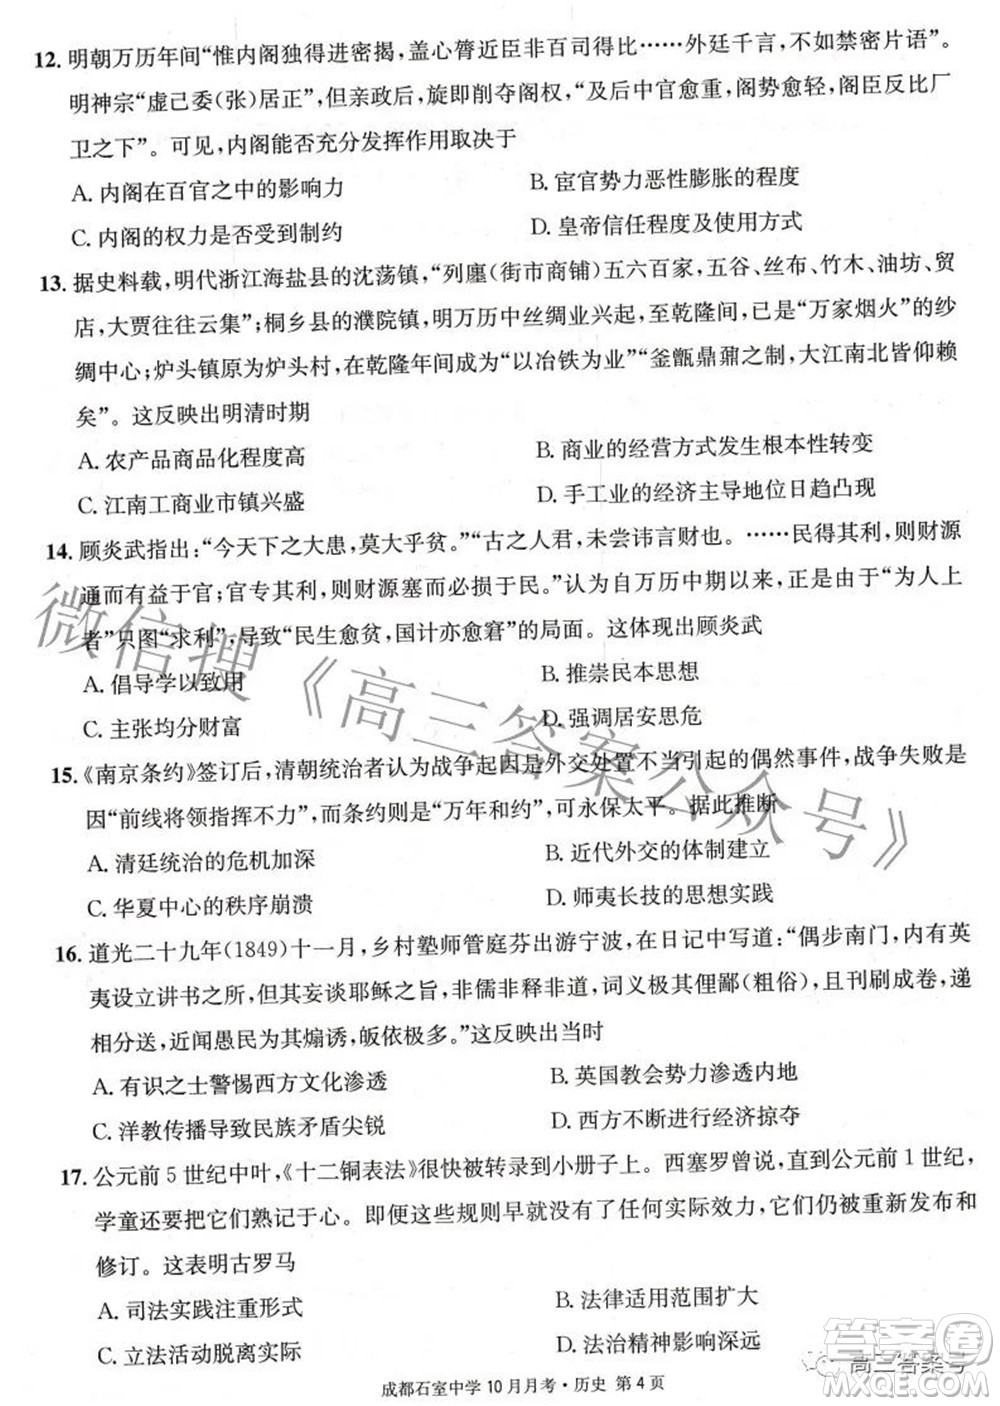 12. 明朝万历年间“惟内阁独得进密揭，盖心膂近臣非百司得比……外廷千言，不如禁密片语”。
明神宗“虚己委(张)居正”，但亲政后，旋即削夺阁权，“及后中官愈重，阁势愈轻，阁臣反比厂
卫之下”。可见，内阁能否充分发挥作用取决于
A. 内阁在百官之中的影响力
B. 宦官势力恶性膨胀的程度
C. 内阁的权力是否受到制约
D. 皇帝信任程度及使用方式
13. 据史料载，明代浙江海盐县的沈荡镇，“列廛(街市商铺)五六百家，五谷、丝布、竹木、油坊、贸
店，大贾往往云集”；桐乡县的濮院镇，明万历中丝绸业兴起，至乾隆间，已是“万家烟火”的纱
绸中心；炉头镇原为炉头村，在乾隆年间成为“以冶铁为业”“釜甑鼎鼐之制，大江南北皆仰赖
矣”。这反映出明清时期
A. 农产品商品化程度高
B. 商业的经营方式发生根本性转变
C. 江南工商业市镇兴盛
D. 手工业的经济主导地位日趋凸现
14. 顾炎武指出：“今天下之大患，莫大乎贫。”“古之人君，未尝讳言财也。……民得其利，则财源
通而有益于官；官专其利，则财源塞而必损于民。”认为自万历中期以来，正是由于“为人上
者”只图“求利”，导致“民生愈贫，国计亦愈窘”的局面。这体现出顾炎武
A. 倡导学以致用
B. 推崇民本思想
C. 主张均分财富
D. 强调居安思危
15.《南京条约》签订后，清朝统治者认为战争起因是外交处置不当引起的偶然事件，战争失败是
因“前线将领指挥不力”，而条约则是“万年和约”，可永保太平。据此推断
A. 清廷统治的危机加深
B. 近代外交的体制建立
C. 华夏中心的秩序崩溃
D. 师夷长技的思想实践
16. 道光二十九年(1849)十一月，乡村塾师管庭芬出游宁波，在日记中写道：“偶步南门，内有英
夷设立讲书之所，但其妄谈耶稣之旨，非儒非释非道，词义极其俚鄙(粗俗)，且刊刷成卷，递
相分送，近闻愚民为其煽诱，皈依极多。”这反映出当时
A. 有识之士警惕西方文化渗透
B. 英国教会势力渗透内地
C. 洋教传播导致民族矛盾尖锐
D. 西方不断进行经济掠夺
17. 公元前5世纪中叶，《十二铜表法》很快被转录到小册子上。西塞罗曾说，直到公元前1世纪，
学童还要把它们熟记于心。即便这些规则早就没有了任何实际效力，它们仍被重新审视和
修订。这表明古罗马
A. 司法实践注重形式
B. 法律适用范围扩大
C. 立法活动脱离实际
D. 法治精神影响深远
成都石室中学10月月考·历史 第4页
微信搜《高三答案公众号》
高三答案号
答案圈
MXQE.COM